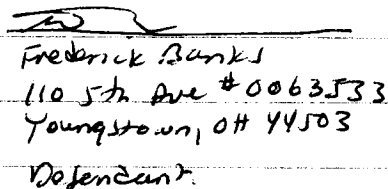 Frederick Banks
110 5th Ave #0063533
Youngstown, OH 44503
Defendant